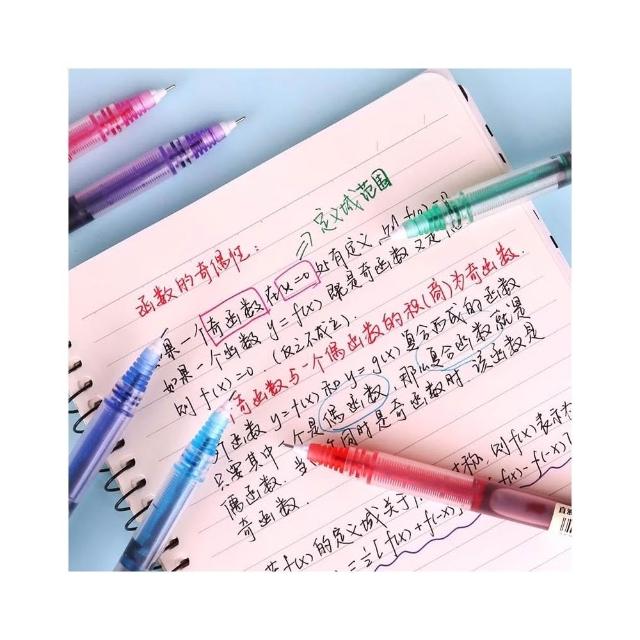 ⇒定义域范围
函数的奇偶性：
果一个奇函数在x=0处有定义，则f(0)=0
如果一个函数y=f(x)既是奇函数又是偶
则f(x)=0.(反之不成立).
奇函数与一个偶函数的积(商)为奇函数.
函数y=f(x)和y=g(x)复合而成的函数
只要其中一个是偶函数，那么复合函数就是
偶函数.当 同时是奇函数时，该函数是
奇函数.
f(x)的定义域关于 对称，则f(x)表示为
=½[f(x)+f(-x)] [f(x)-f(-x)]
直液